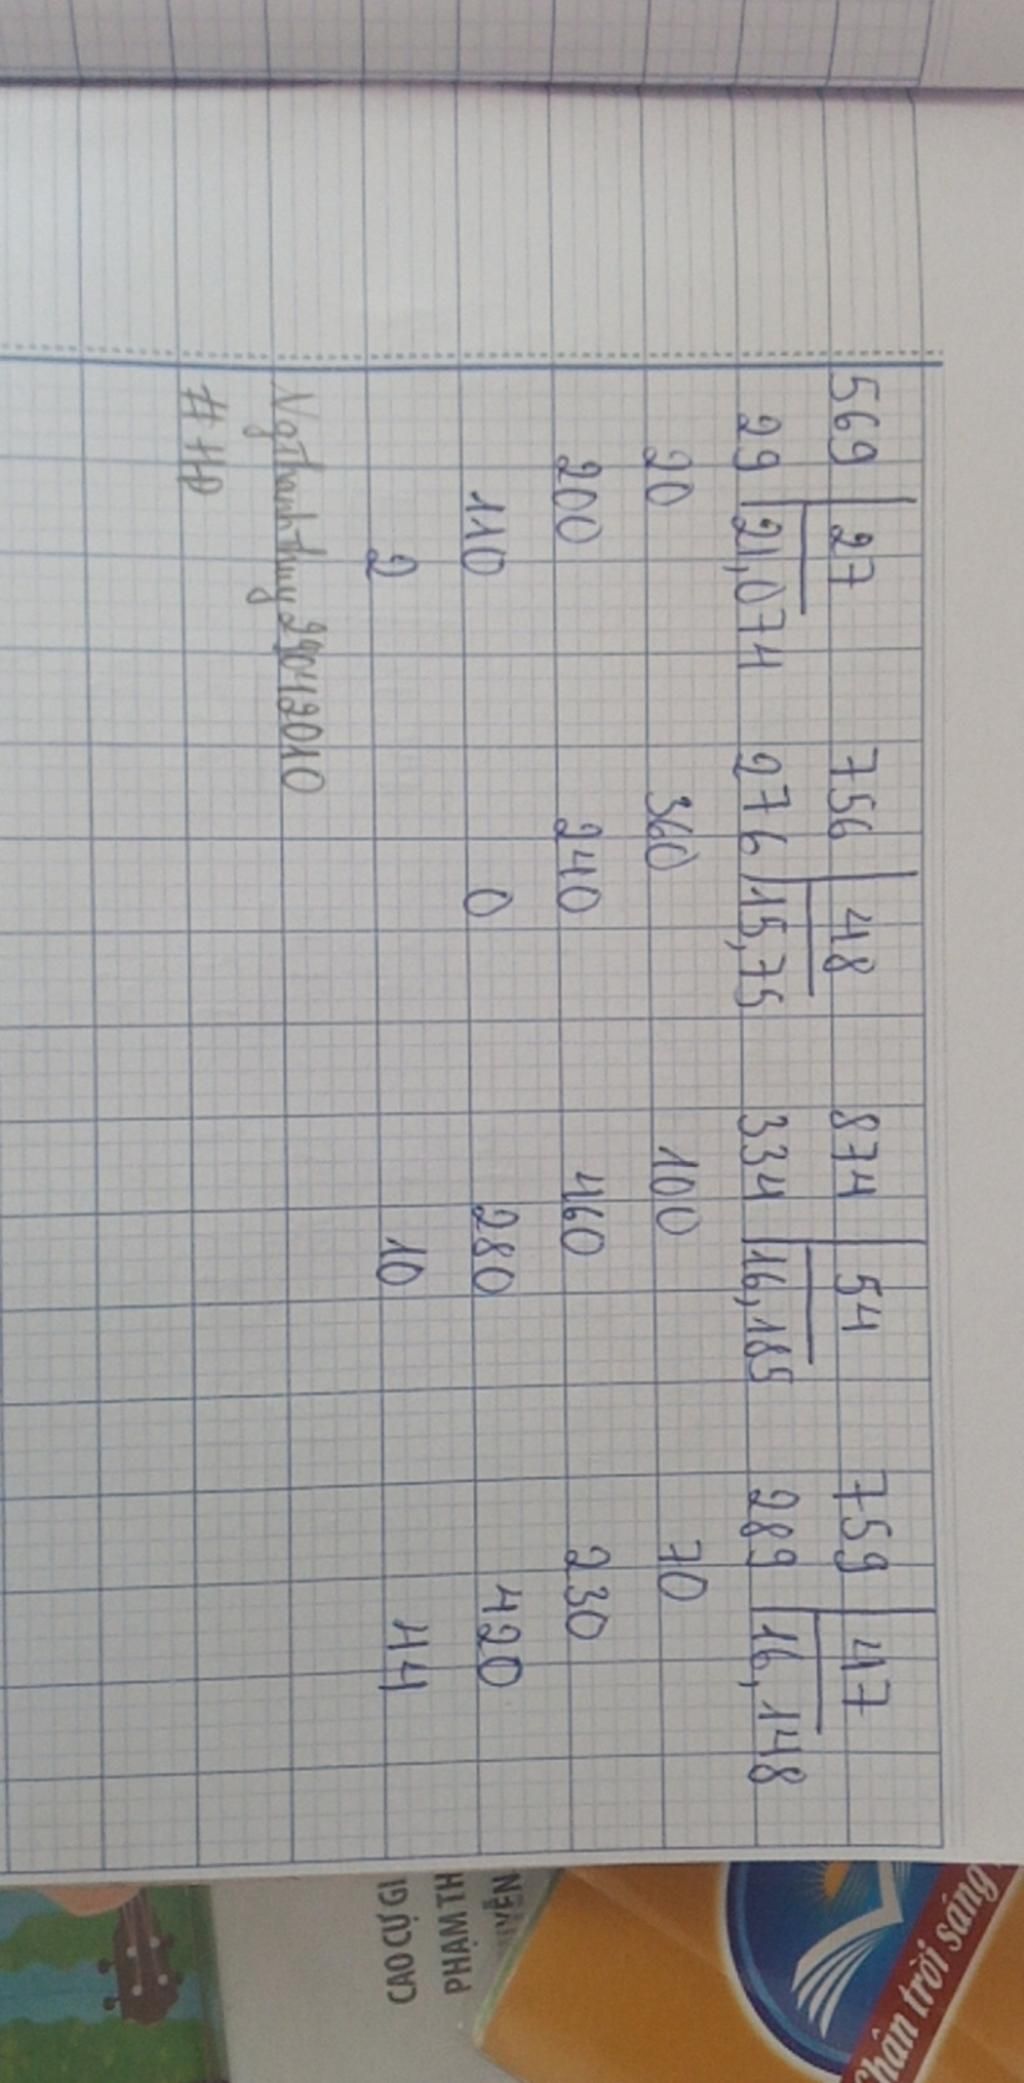 569 27 756 48 874 54 759 47
29 21,074 276 15,75 334 16,185 289 16,148
20 360 100 70
200 240 460 230
110 0 280 420
2 10 44
Ngthanhthuy29042010
#HĐ
Chân trời sáng
CAO CỰ GI
PHẠM TH